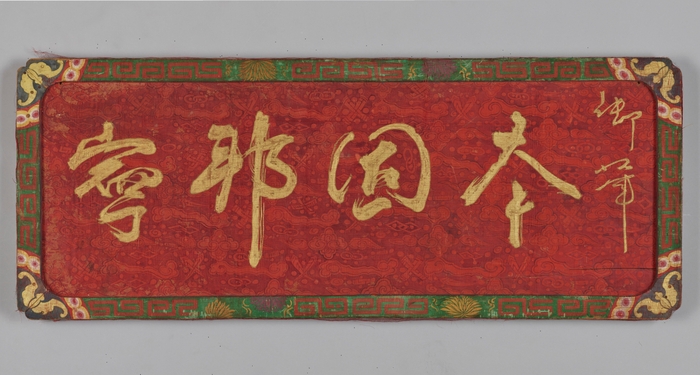 御筆
本固邦寧